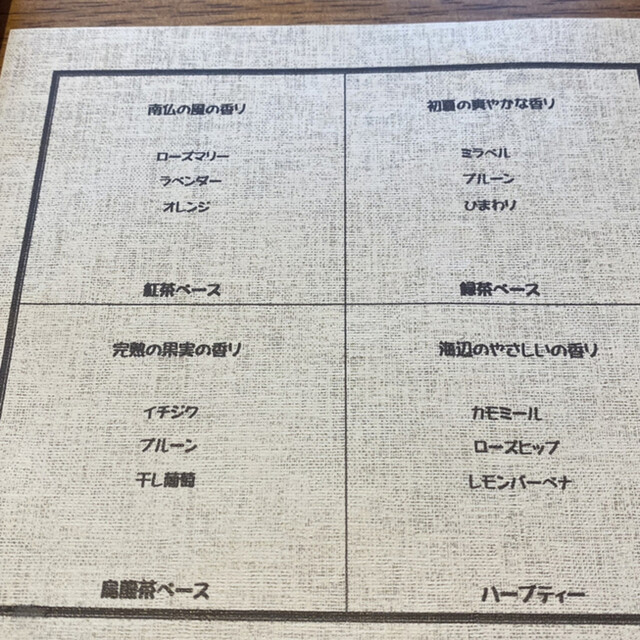 南仏の風の香り
ローズマリー
ラベンダー
オレンジ
紅茶ベース
初夏の爽やかな香り
ミラベル
プルーン
ひまわり
緑茶ベース
完熟の果実の香り
イチジク
プルーン
干し葡萄
烏龍茶ベース
海辺のやさしいの香り
カモミール
ローズヒップ
レモンバーベナ
ハーブティー